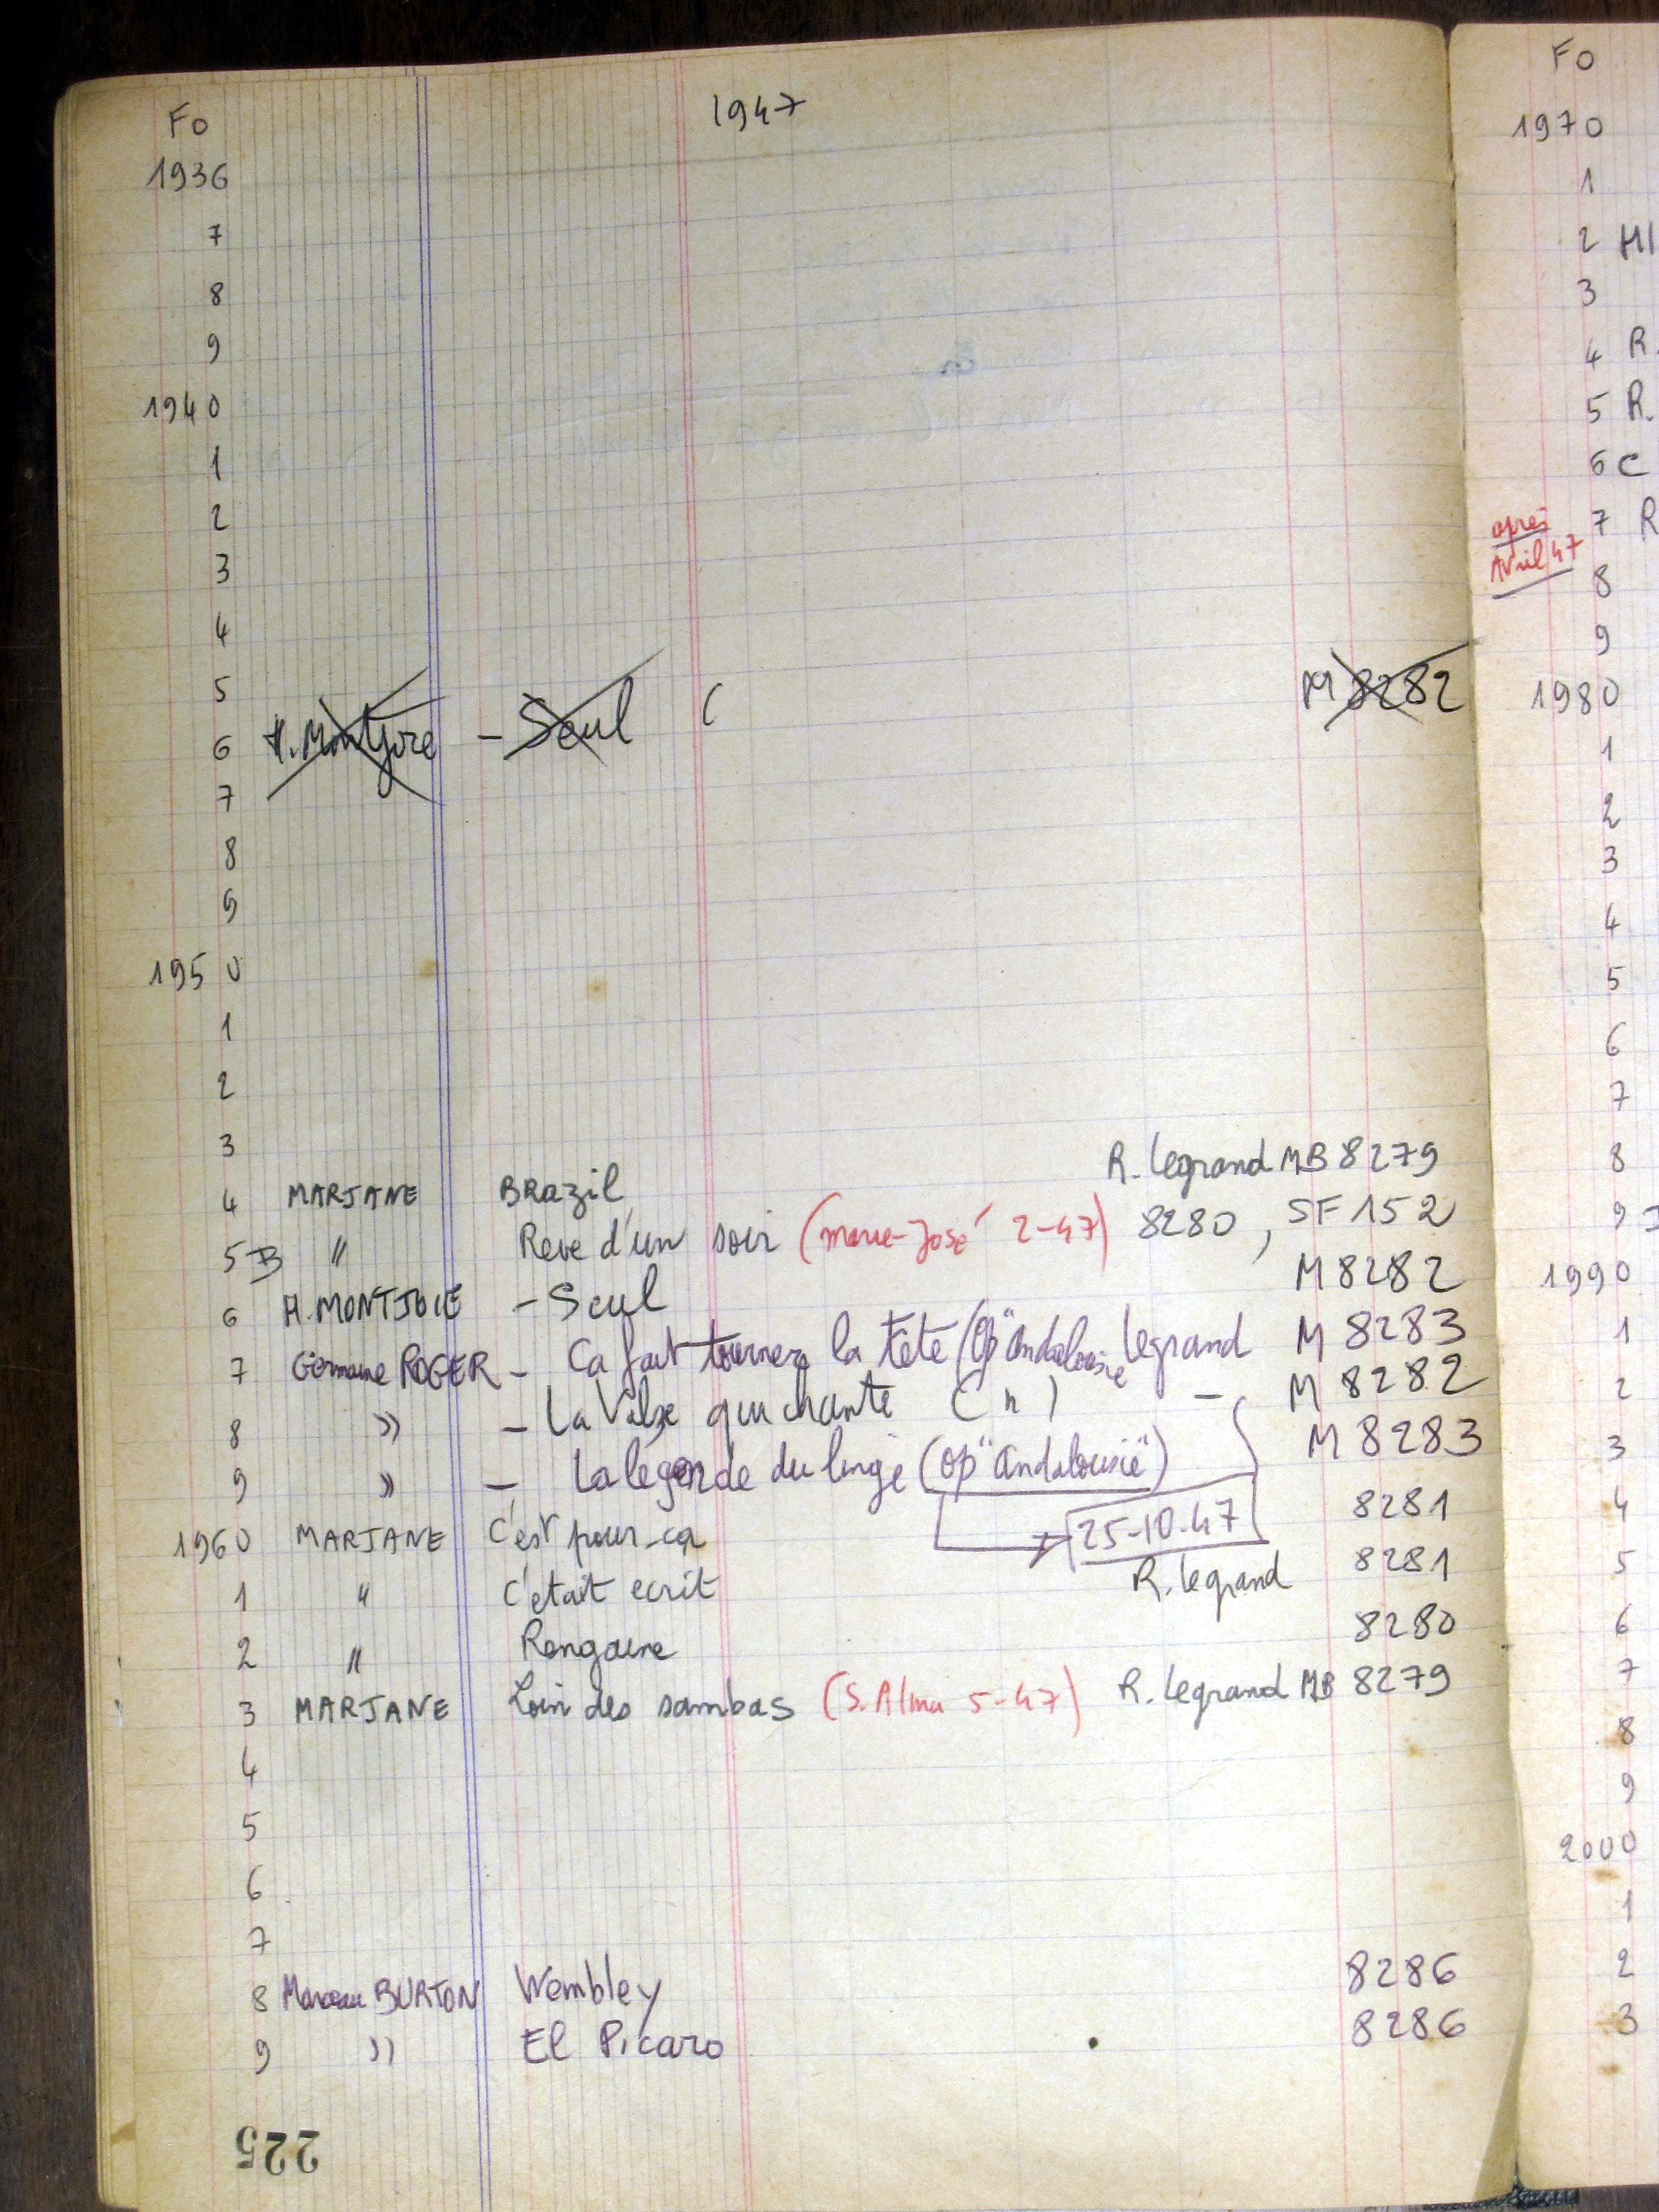 Fo 1947
1936
7
8
9
1940
1
2
3
4
5
6 H. Montjoie - Seul ( M 8282
7
8
9
1950
1
2
3
4 MARJANE BRazil R. legrand MB 8279
5B " Reve d'un soir (marie-José 2-47) 8280, SF 152
6 H. MONTJOIE - Seul M 8282
7 Germaine ROGER - Ca fait tourner la tête (Op "Andalousie legrand M 8283
8 » - La Valse qui chante ( " ) - M 8282
9 » - La légende du linge (op "Andalousie") M 8283
25-10-47
1960 MARJANE C'est pour ça 8281
1 " C'etait ecrit R. legrand 8281
2 " Rengaine 8280
3 MARJANE Loin des sambas (S. Alma 5-47) R. legrand MB 8279
4
5
6
7
8 Marceau BURTON Wembley 8286
9 » El Picaro 8286
225
Fo
1970
1
2 HI
3
4 R.
5 R.
6 C
après
Avril 47
7 R
8
9
1980
1
2
3
4
5
6
7
8
9
1990
1
2
3
4
5
6
7
8
9
2000
1
2
3